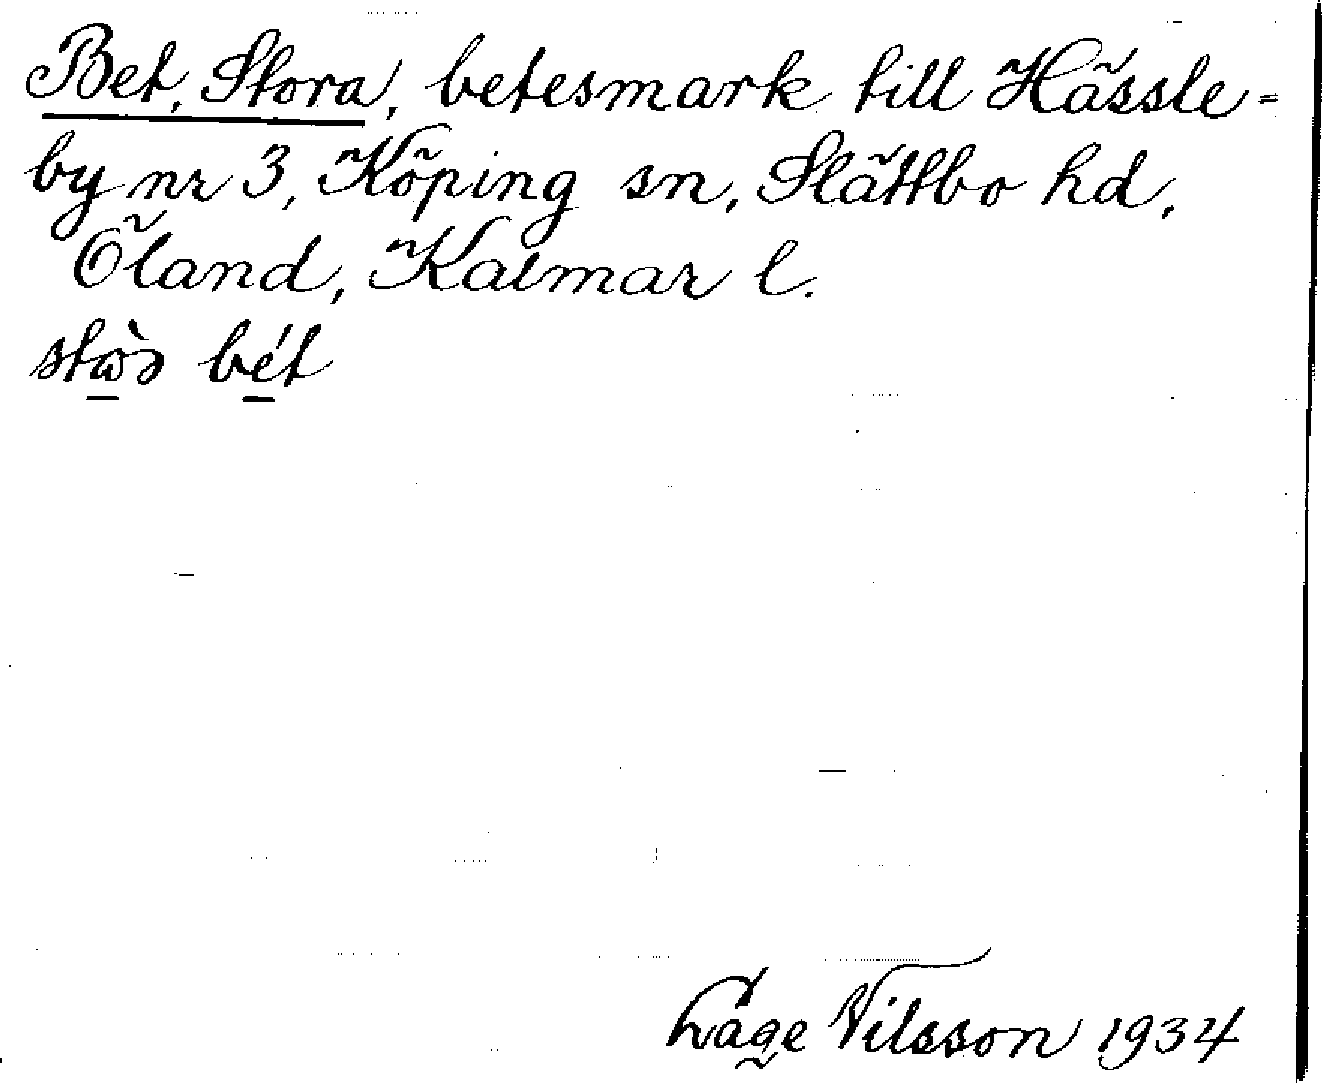 Bet, Stora, betesmark till Hässle-
by nr 3, Köping sn, Slättbo hd,
Öland, Kalmar l.
bét
Låge Nilsson 1934